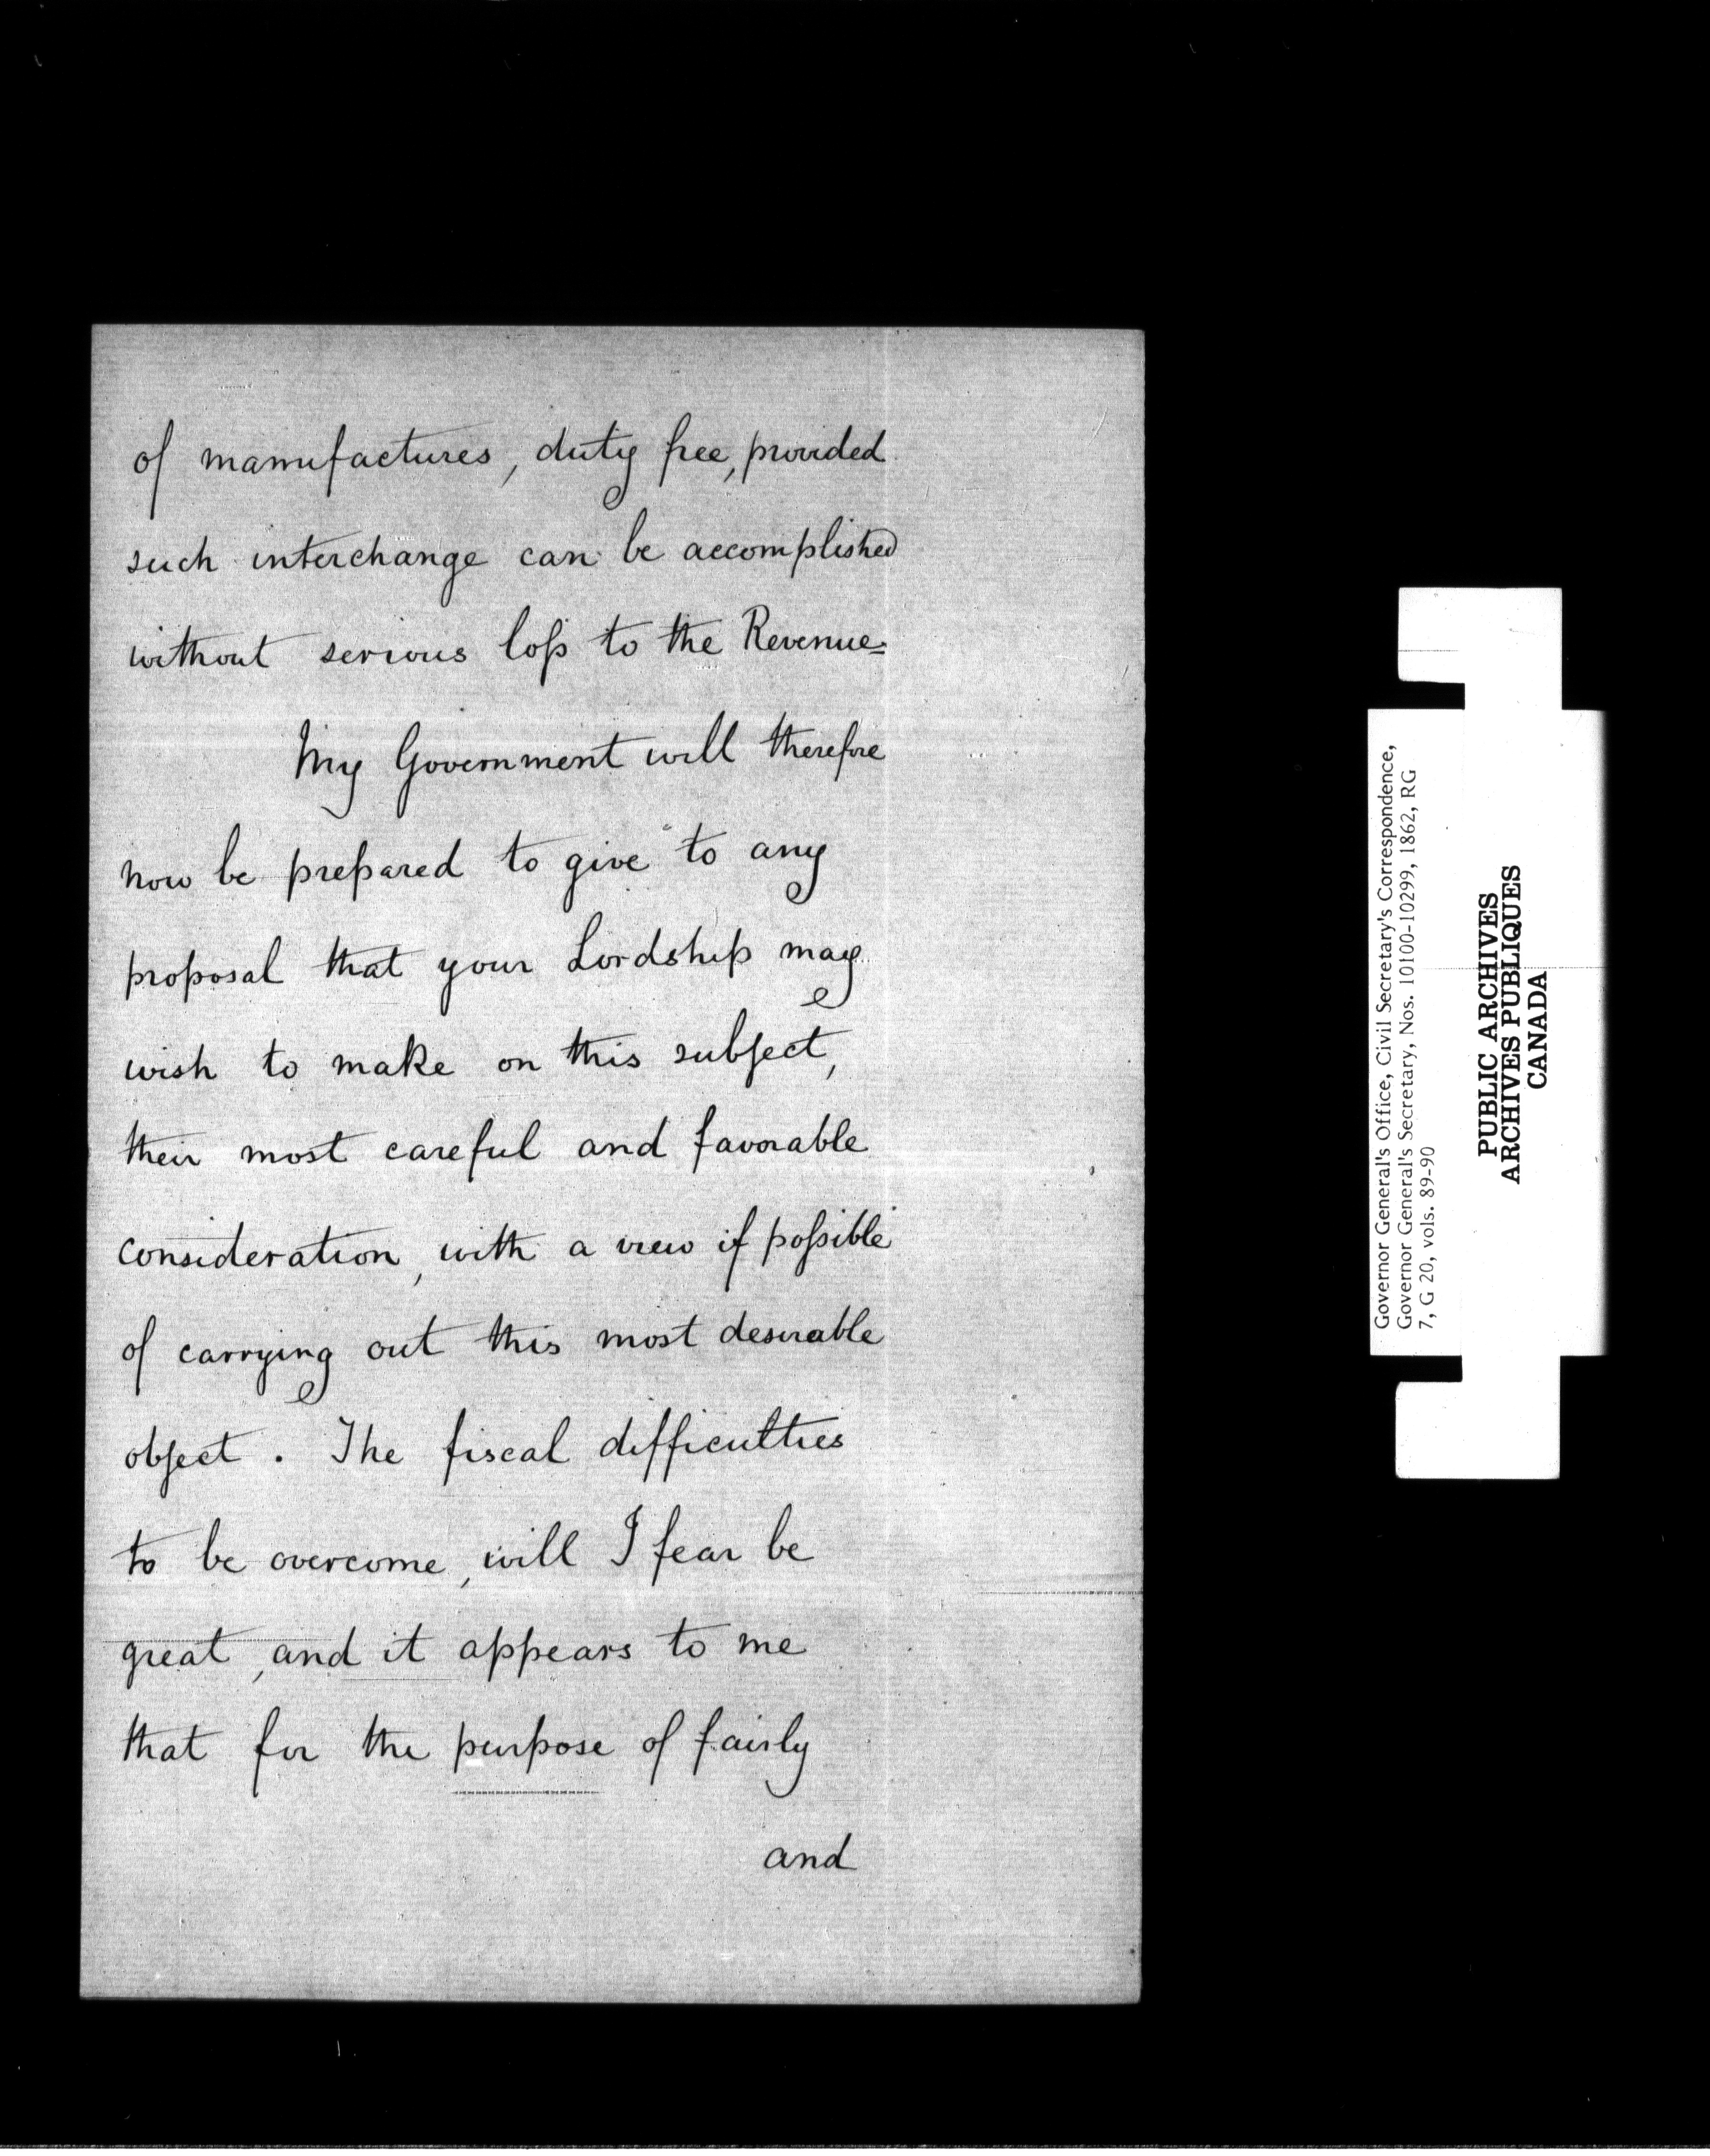 of manufactures, duty free, provided
such interchange can be accomplished
without serious loss to the Revenue=
My Government will therefore
now be prepared to give to any
proposal that your Lordship may
wish to make on this subject,
their most careful and favorable
consideration, with a view if possible
of carrying out this most desirable
object. The fiscal difficulties
to be overcome, will I fear be
great, and it appears to me
that for the purpose of fairly
and
Governor General's Office, Civil Secretary's Correspondence,
Governor General's Secretary, Nos. 10100-10299, 1862, RG
7, G 20, vols. 89-90
PUBLIC ARCHIVES
ARCHIVES PUBLIQUES
CANADA